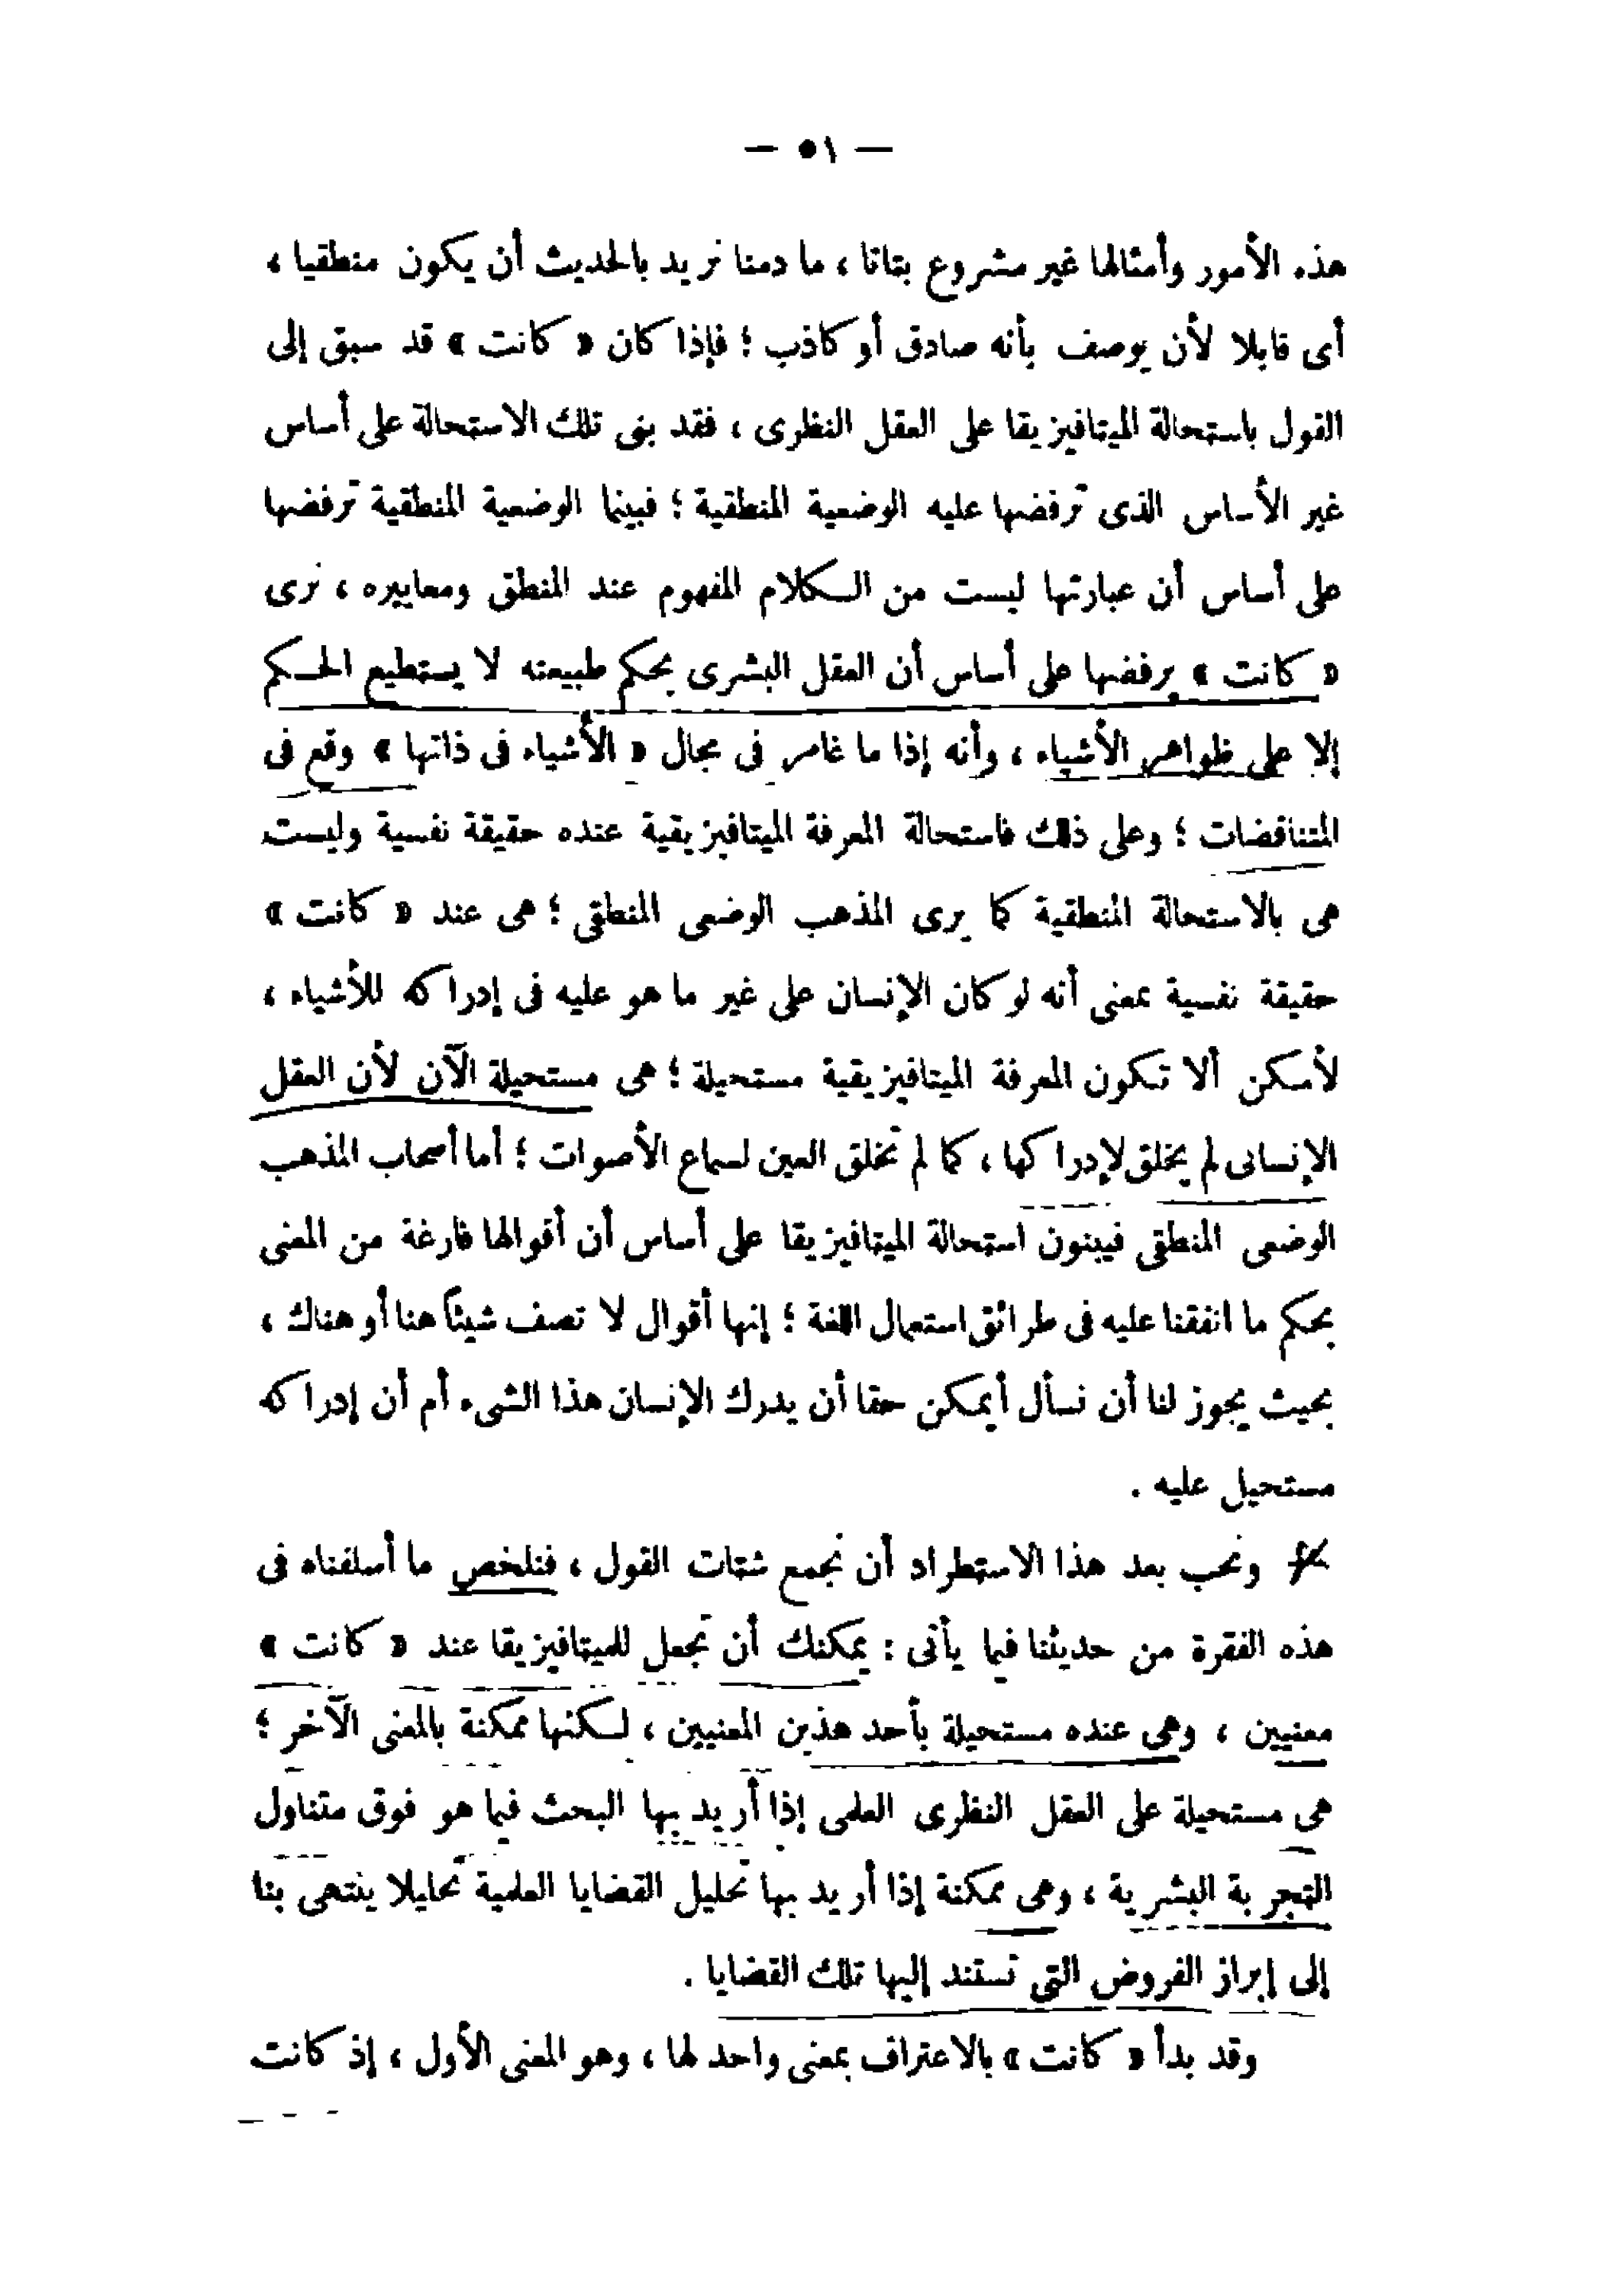 — ٥١ —
هذه الأمور وأمثالها غير مشروع بتاتا ، ما دمنا نريد بالحديث أن يكون منطقيا ،
أى قابلا لأن يوصف بأنه صادق أو كاذب ؛ فإذا كان « كانت » قد سبق إلى
القول باستحالة الميتافيزيقا على العقل النظرى ، فقد بنى تلك الاستحالة على أساس
غير الأساس الذى ترفضها عليه الوضعية المنطقية ؛ فبينما الوضعية المنطقية ترفضها
على أساس أن عبارتها ليست من الكلام المفهوم عند المنطق ومعاييره ، نرى
« كانت » يرفضها على أساس أن العقل البشرى بحكم طبيعته لا يستطيع الحكم
إلا على ظواهر الأشياء ، وأنه إذا ما غامر فى مجال « الأشياء فى ذاتها » وقع فى
المتناقضات ؛ وعلى ذلك فاستحالة المعرفة الميتافيزيقية عنده حقيقة نفسية وليست
هى بالاستحالة المنطقية كما يرى المذهب الوضعى المنطقى ؛ هى عند « كانت »
حقيقة نفسية بمعنى أنه لو كان الإنسان على غير ما هو عليه فى إدراكه للأشياء ،
لأمكن ألا تكون المعرفة الميتافيزيقية مستحيلة ؛ هى مستحيلة الآن لأن العقل
الإنسانى لم يخلق لإدراكها ، كما لم تخلق العين لسماع الأصوات ؛ أما أصحاب المذهب
الوضعى المنطقى فيبنون استحالة الميتافيزيقا على أساس أن أقوالها فارغة من المعنى
بحكم ما اتفقنا عليه فى طرائق استعمال اللغة ؛ إنها أقوال لا تصف شيئاً هنا أو هناك ،
بحيث يجوز لنا أن نسأل أيمكن حقا أن يدرك الإنسان هذا الشىء أم أن إدراكه
مستحيل عليه .
ونحب بعد هذا الاستطراد أن نجمع شتات القول ، فنلخص ما أسلفناه فى
هذه الفقرة من حديثنا فيما يأتى : يمكنك أن تجعل للميتافيزيقا عند « كانت »
معنيين ، وهى عنده مستحيلة بأحد هذين المعنيين ، لكنها ممكنة بالمعنى الآخر ؛
هى مستحيلة على العقل النظرى العلمى إذا أريد بها البحث فيما هو فوق متناول
التجربة البشرية ، وهى ممكنة إذا أريد بها تحليل القضايا العلمية تحليلا ينتهى بنا
إلى إبراز الفروض التى تستند إليها تلك القضايا .
وقد بدأ « كانت » بالاعتراف بمعنى واحد لها ، وهو المعنى الأول ، إذ كانت